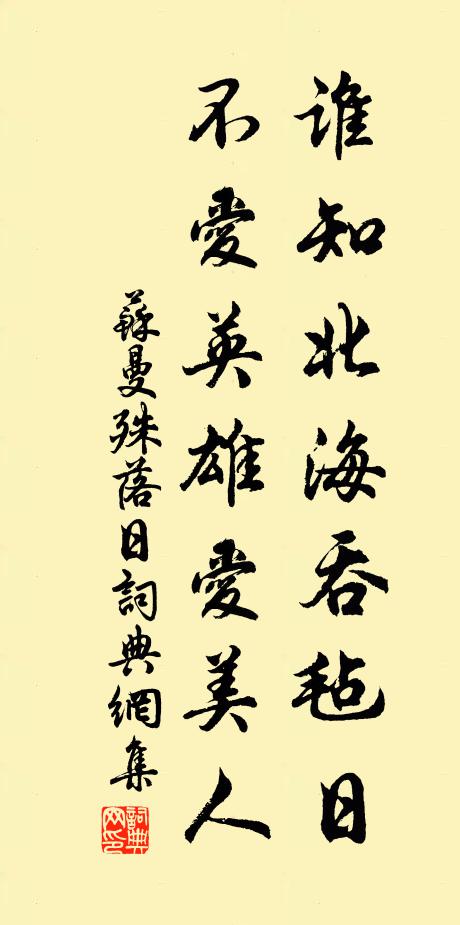 誰知北海吞氈日
不愛英雄愛美人
蘇曼殊落日詞典網集
詞典网印